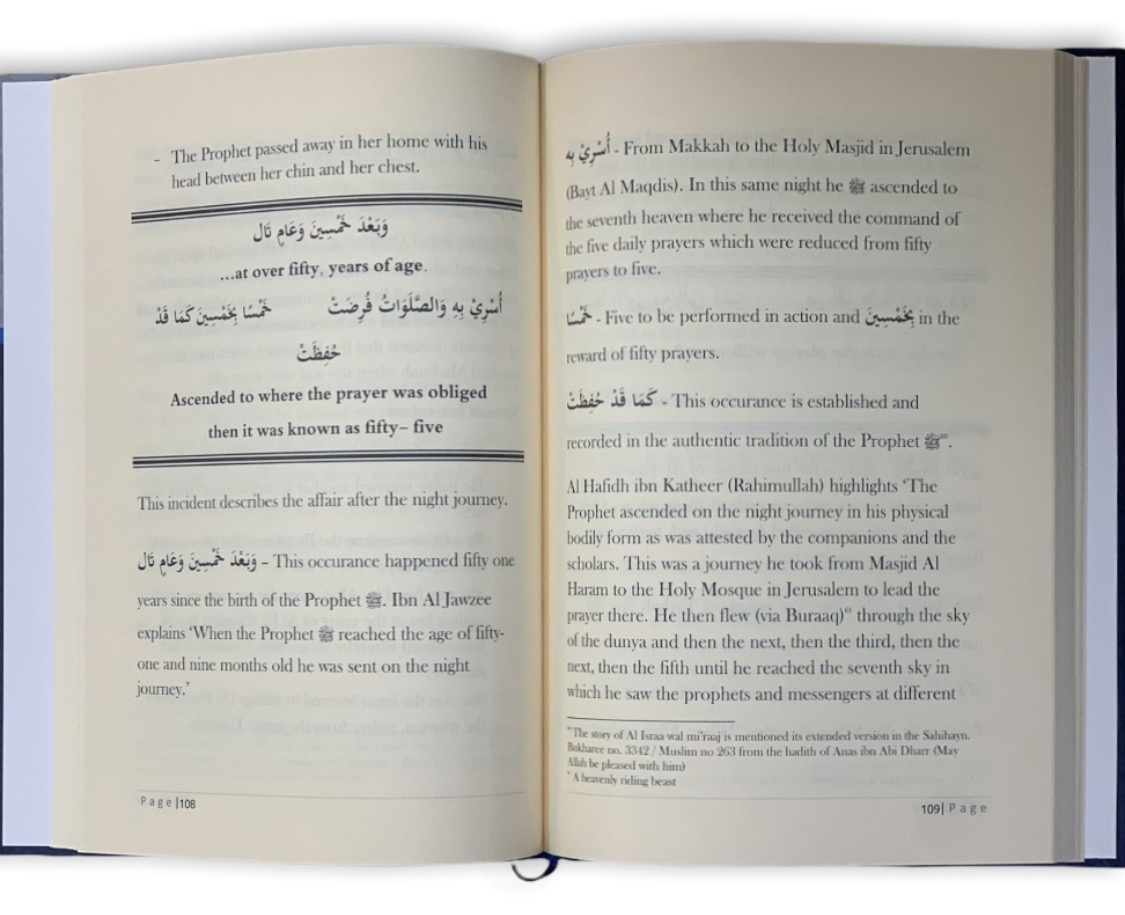 - The Prophet passed away in her home with his
head between her chin and her chest.
وَبَعْدَ خَمْسِينَ وَعَامٍ تَال
...at over fifty, years of age.
أُسْرِيْ بِهِ وَالصَّلَوَاتُ فُرِضَتْ خَمْسًا بِخَمْسِينَ كَمَا قَدْ
حُفِظَتْ
Ascended to where the prayer was obliged
then it was known as fifty– five
This incident describes the affair after the night journey.
وَبَعْدَ خَمْسِينَ وَعَامٍ تَال – This occurance happened fifty one
years since the birth of the Prophet ﷺ. Ibn Al Jawzee
explains ‘When the Prophet ﷺ reached the age of fifty-
one and nine months old he was sent on the night
journey.’
Page |108
أُسْرِيْ بِهِ - From Makkah to the Holy Masjid in Jerusalem
(Bayt Al Maqdis). In this same night he ﷺ ascended to
the seventh heaven where he received the command of
the five daily prayers which were reduced from fifty
prayers to five.
خَمْسًا - Five to be performed in action and بِخَمْسِينَ in the
reward of fifty prayers.
كَمَا قَدْ حُفِظَتْ - This occurance is established and
recorded in the authentic tradition of the Prophet ﷺ.
Al Hafidh ibn Katheer (Rahimullah) highlights ‘The
Prophet ascended on the night journey in his physical
bodily form as was attested by the companions and the
scholars. This was a journey he took from Masjid Al
Haram to the Holy Mosque in Jerusalem to lead the
prayer there. He then flew (via Buraaq) through the sky
of the dunya and then the next, then the third, then the
next, then the fifth until he reached the seventh sky in
which he saw the prophets and messengers at different
The story of Al Israa wal mi’raaj is mentioned its extended version in the Sahihayn.
Bukharee no. 3342 / Muslim no 263 from the hadith of Anas ibn Abi Dharr (May
Allah be pleased with him)
A heavenly riding beast
109| Page